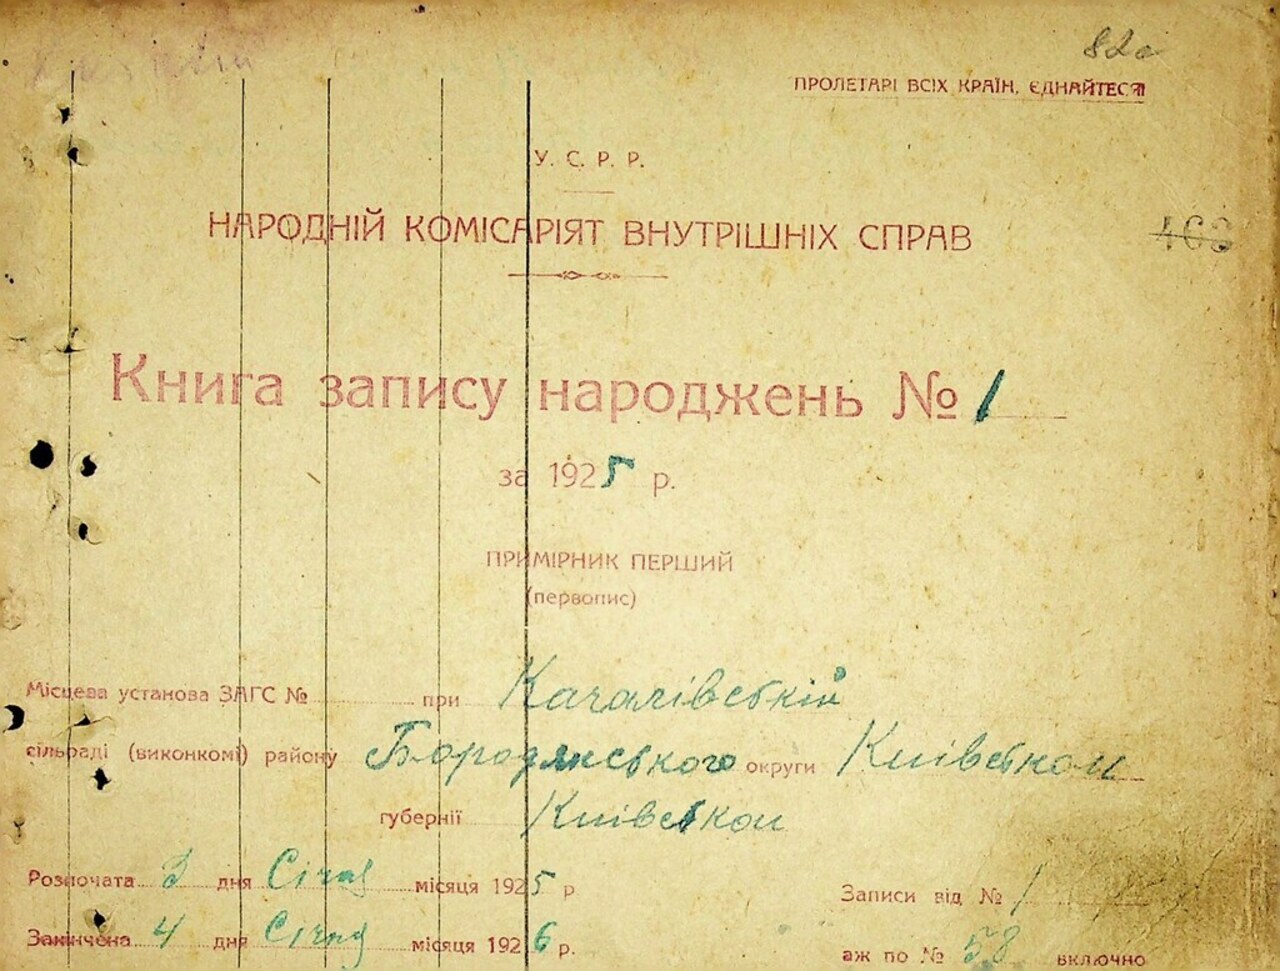 82а
ПРОЛЕТАРІ ВСІХ КРАЇН, ЄДНАЙТЕСЯ
У. С. Р. Р.
НАРОДНІЙ КОМІСАРІЯТ ВНУТРІШНІХ СПРАВ
Книга запису народжень № 1
за 1925 р.
ПРИМІРНИК ПЕРШИЙ
(первопис)
Місцева установа ЗАГС № при Качалівській
сільраді (виконкомі) району Бородянського округи Київської
губернії Київської
Розпочата 3 дня Січня місяця 1925 р
Записи від № 1
Закінчена 4 дня Січня місяця 1926 р.
аж по № 58 включно